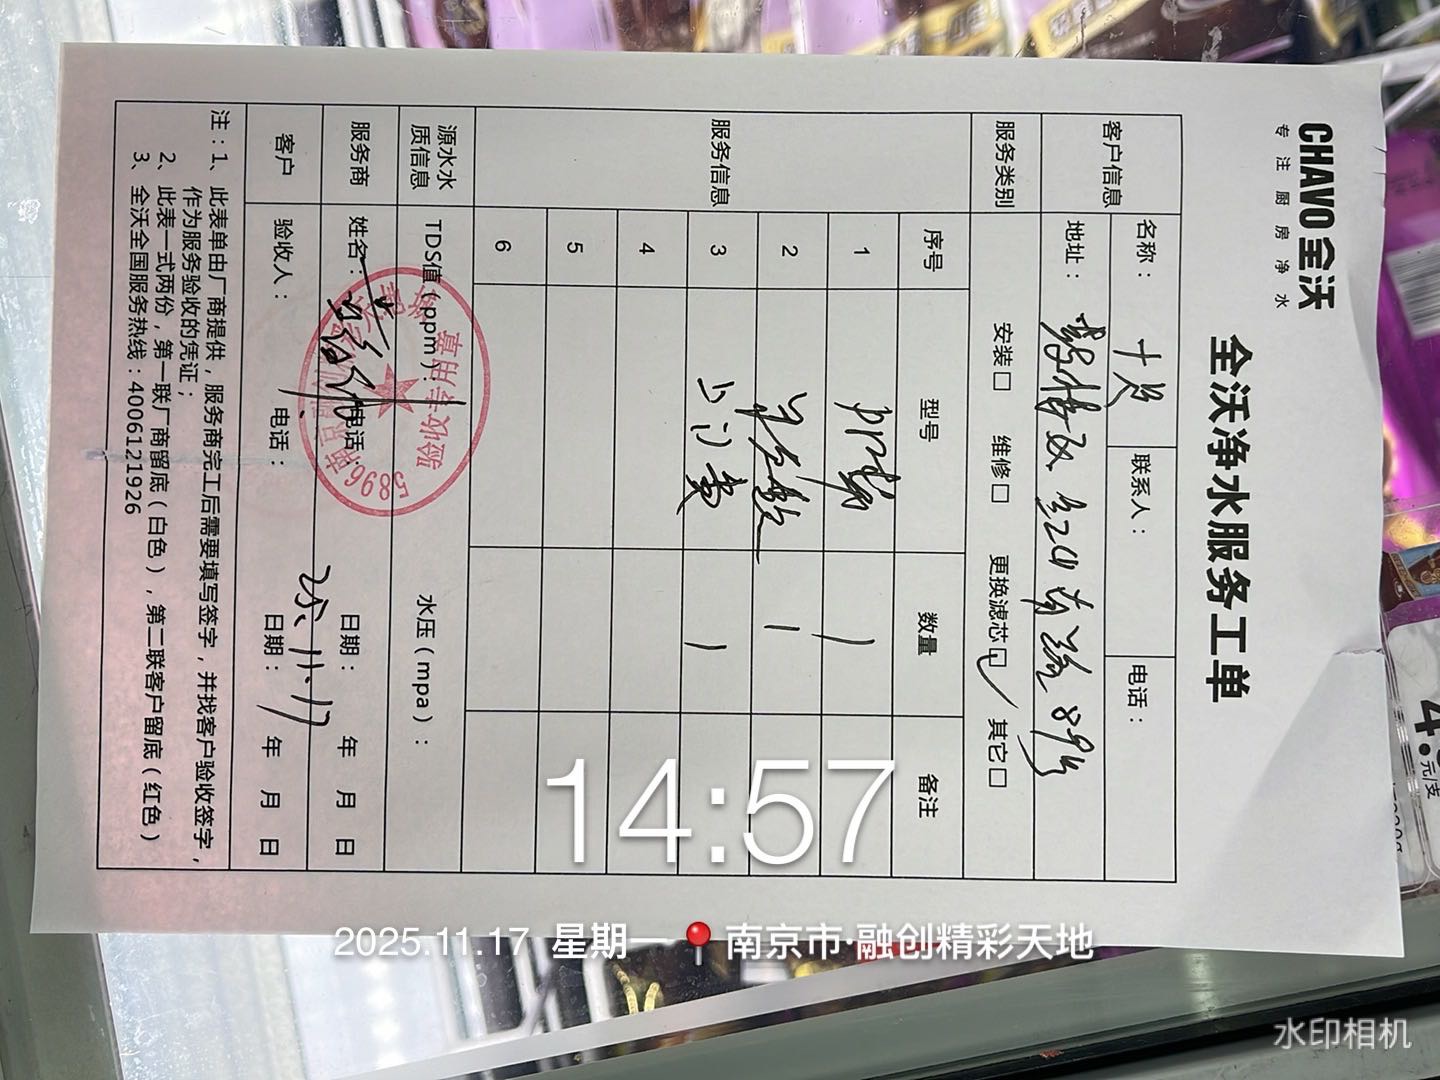 CHAVO 全沃
专注厨房净水
全沃净水服务工单
客户信息
名称： 十足
联系人：
电话：
地址： 红山南路89号
服务类别
安装□ 维修□ 更换滤芯□✓ 其它□
服务信息
序号 型号 数量 备注
1 1
2 1
3 上门费 1
4
5
6
源水水质信息
TDS值（ppm）：
水压（mpa）：
服务商
姓名：
电话：
日期： 年 月 日
25.11.17
客户
验收人：
电话：
日期： 年 月 日
验收专用章
5896
注：1、此表单由厂商提供，服务商完工后需要填写签字，并找客户验收签字，
作为服务验收的凭证；
2、此表一式两份，第一联厂商留底（白色），第二联客户留底（红色）
3、全沃全国服务热线：4006121926
14:57
2025.11.17 星期一 南京市·融创精彩天地
水印相机
元/支